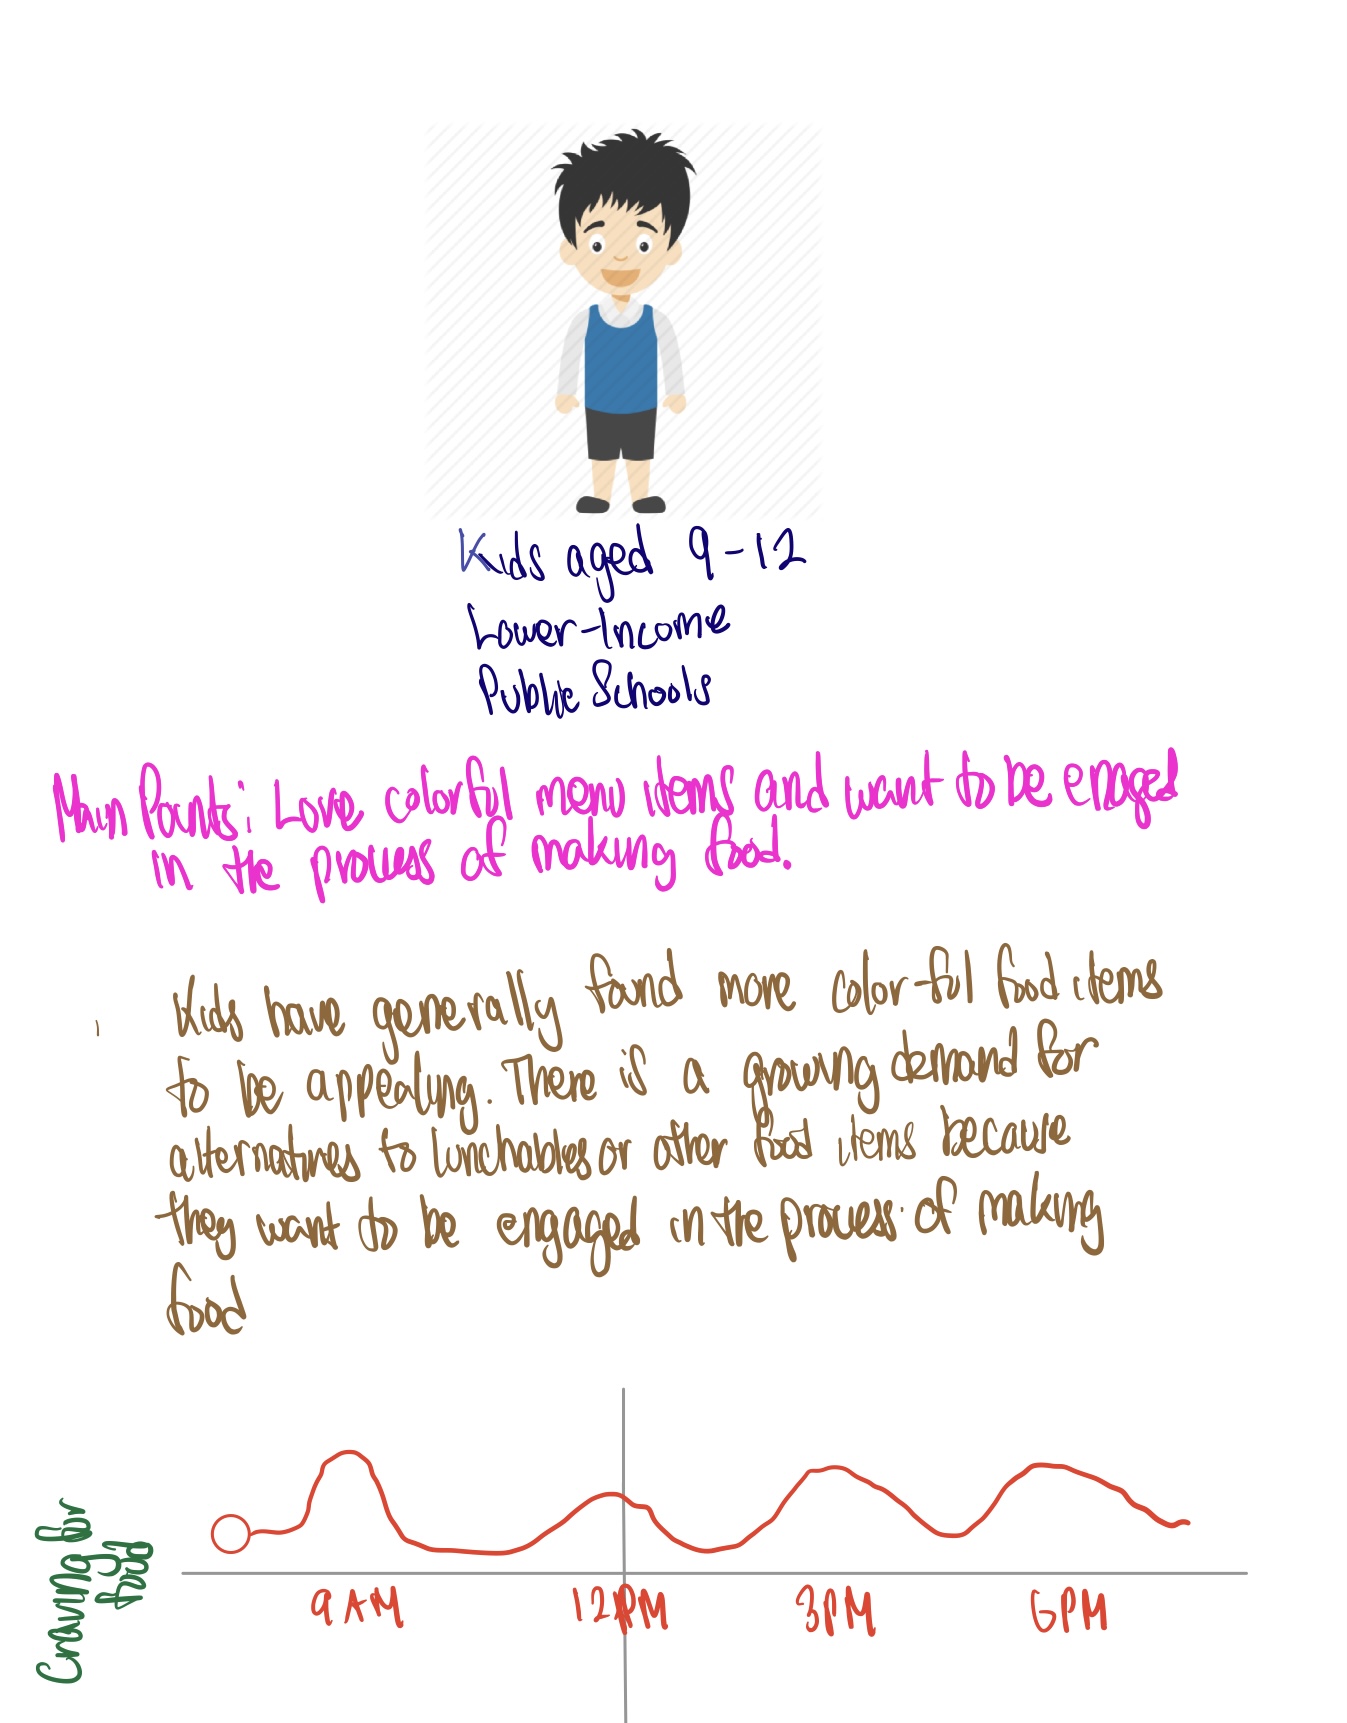 Kids aged 9-12
Lower-Income
Public Schools
Main Points: Love colorful menu items and want to be engaged
in the process of making food.
Kids have generally found more color-ful food items
to be appealing. There is a growing demand for
alternatives to lunchables or other food items because
they want to be engaged in the process of making
food
Craving for
food
9AM 12PM 3PM 6PM